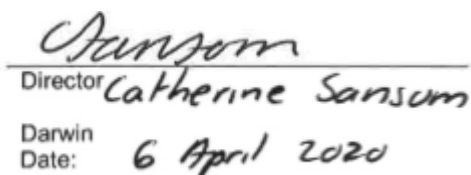 CSansom
Director Catherine Sansom
Darwin
Date: 6 April 2020